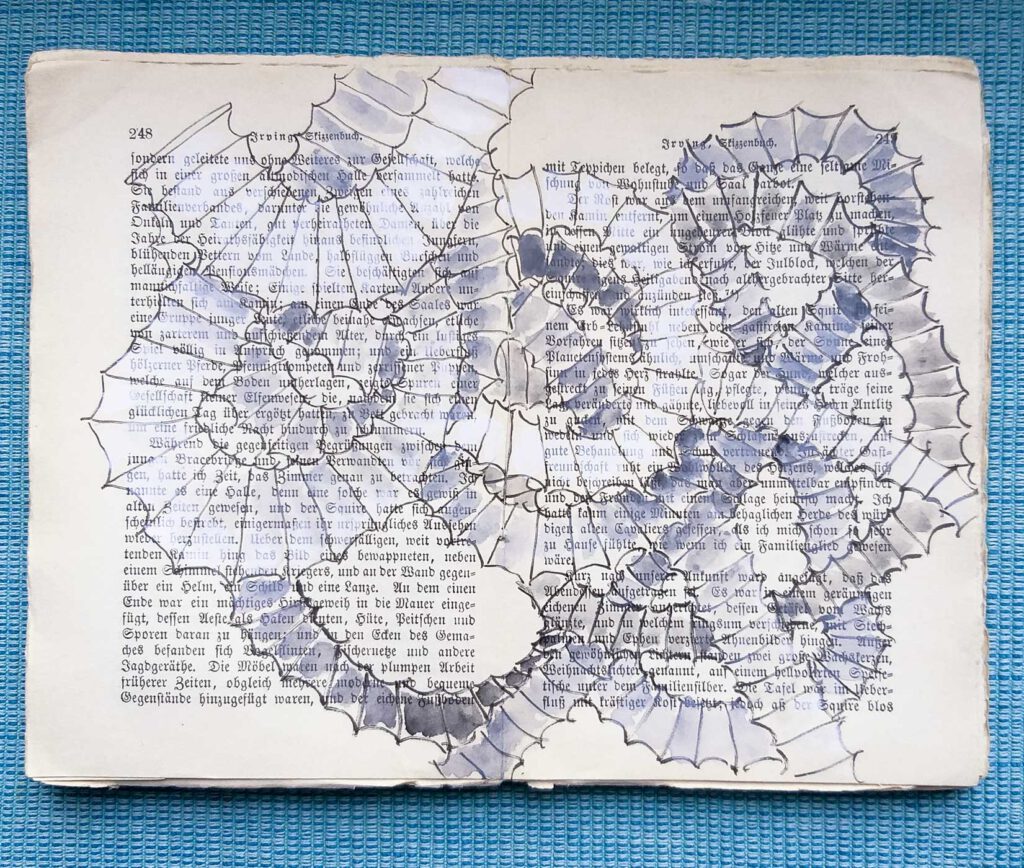 248
Irving, Skizzenbuch.
sondern geleitete uns ohne Weiteres zur Gesellschaft, welche
sich in einer großen altmodischen Halle versammelt hatte.
Sie bestand aus verschiedenen Zweigen eines zahlreichen
Familienverbandes, darunter die gewöhnliche Anzahl von
Onkeln und Tanten, mit verheiratheten Damen, über die
Jahre der Heirathsfähigkeit hinaus befindlichen Jungfern,
blühenden Vettern vom Lande, halbflüggen Burschen und
helläugigen Pensionsmädchen. Sie beschäftigten sich auf
mannichfaltige Weise; Einige spielten Karten, Andere un-
terhielten sich am Kamin; an einen Ende des Saales war
eine Gruppe junger Leute, etliche beinahe erwachsen, etliche
von zarterem und aufschießendem Alter, durch ein lustiges
Spiel völlig in Anspruch genommen; und ein Ueberfluß
hölzerner Pferde, Pfennigtrompeten und zerrissener Puppen,
welche auf dem Boden umherlagen, zeigte Spuren einer
Gesellschaft kleiner Elfenwesen, die, nachdem sie sich einen
glücklichen Tag über ergötzt hatten, zu Bett gebracht waren,
um eine friedliche Nacht hindurch zu schlummern.
Während die gegenseitigen Begrüßungen zwischen dem
jungen Bracebridge und seinen Verwandten vor sich gin-
gen, hatte ich Zeit, das Zimmer genau zu betrachten. Ich
nannte es eine Halle, denn eine solche war es gewiß in
alten Zeiten gewesen, und der Squire hatte sich augen-
scheinlich bestrebt, einigermaßen ihr ursprüngliches Aussehen
wieder herzustellen. Ueber dem schwerfälligen, weit vortre-
tenden Kamin hing das Bild eines bewappneten, neben
einem Schimmel stehenden Kriegers, und an der Wand gegen-
über ein Helm, ein Schild und eine Lanze. An dem einen
Ende war ein mächtiges Hirschgeweih in die Mauer einge-
fügt, dessen Aeste als Haken dienten, Hüte, Peitschen und
Sporen daran zu hängen; und in den Ecken des Gema-
ches befanden sich Vogelflinten, Fischernetze und andere
Jagdgeräthe. Die Möbel waren nach der plumpen Arbeit
früherer Zeiten, obgleich mehrere moderne und bequeme
Gegenstände hinzugefügt waren, und der eichene Fußboden
Irving, Skizzenbuch.
mit Teppichen belegt, so daß das Ganze eine seltsame Mi-
schung von Wohnstube und Saal darbot.
Der Rost war aus dem umfangreichen, weit vorstehen-
den Kamin entfernt, um einem Holzfeuer Platz zu machen,
in dessen Mitte ein ungeheurer Block glühte und sprühte
und einen gewaltigen Strom von Hitze und Wärme
dies war, wie ich erfuhr, der Julblock, welchen der
Squire eigens Heiligabend nach althergebrachter Sitte her-
einschaffen und anzünden ließ.
Es war wirklich interessant, den alten Squire in sei-
nem Erb-Lehnstuhl neben dem gastfreien Kamine seiner
Vorfahren sitzen zu sehen, wie er sich, der Sonne eines
Planetensystems ähnlich, umschaute und Wärme und Froh-
sinn in jedes Herz strahlte. Sogar der Hund, welcher aus-
gestreckt zu seinen Füßen lag, pflegte, wenn er träge seine
Lage veränderte und gähnte, liebevoll in seines Herrn Antlitz
zu gucken, mit dem Schwanze gegen den Fußboden zu
wedeln und sich wieder zum Schlafen auszustrecken, auf
gute Behandlung und Schutz vertrauend. In ächter Gast-
freundschaft ruht ein Wohlwollen des Herzens, welches sich
nicht beschreiben läßt, das man aber unmittelbar empfindet
und den Fremden mit einem Schlage heimisch macht. Ich
hatte kaum einige Minuten am behaglichen Herde des wür-
digen alten Cavaliers gesessen, als ich mich schon so sehr
zu Hause fühlte, wie wenn ich ein Familienglied gewesen
wäre.
Kurz nach unserer Ankunft ward angesagt, daß das
Abendessen aufgetragen sei. Es war in einem geräumigen
eichenen Zimmer angerichtet, dessen Getäfel von Wachs
glänzte, und in welchem ringsum verschiedene, mit Stech-
palmen und Epheu verzierte Ahnenbilder hingen. Außer
den gewöhnlichen Lichtern standen zwei große Wachskerzen,
Weihnachtslichter genannt, auf einem hellpolirten Speise-
tische unter dem Familiensilber. Die Tafel war im Ueber-
fluß mit kräftiger Kost besetzt; jedoch aß der Squire blos